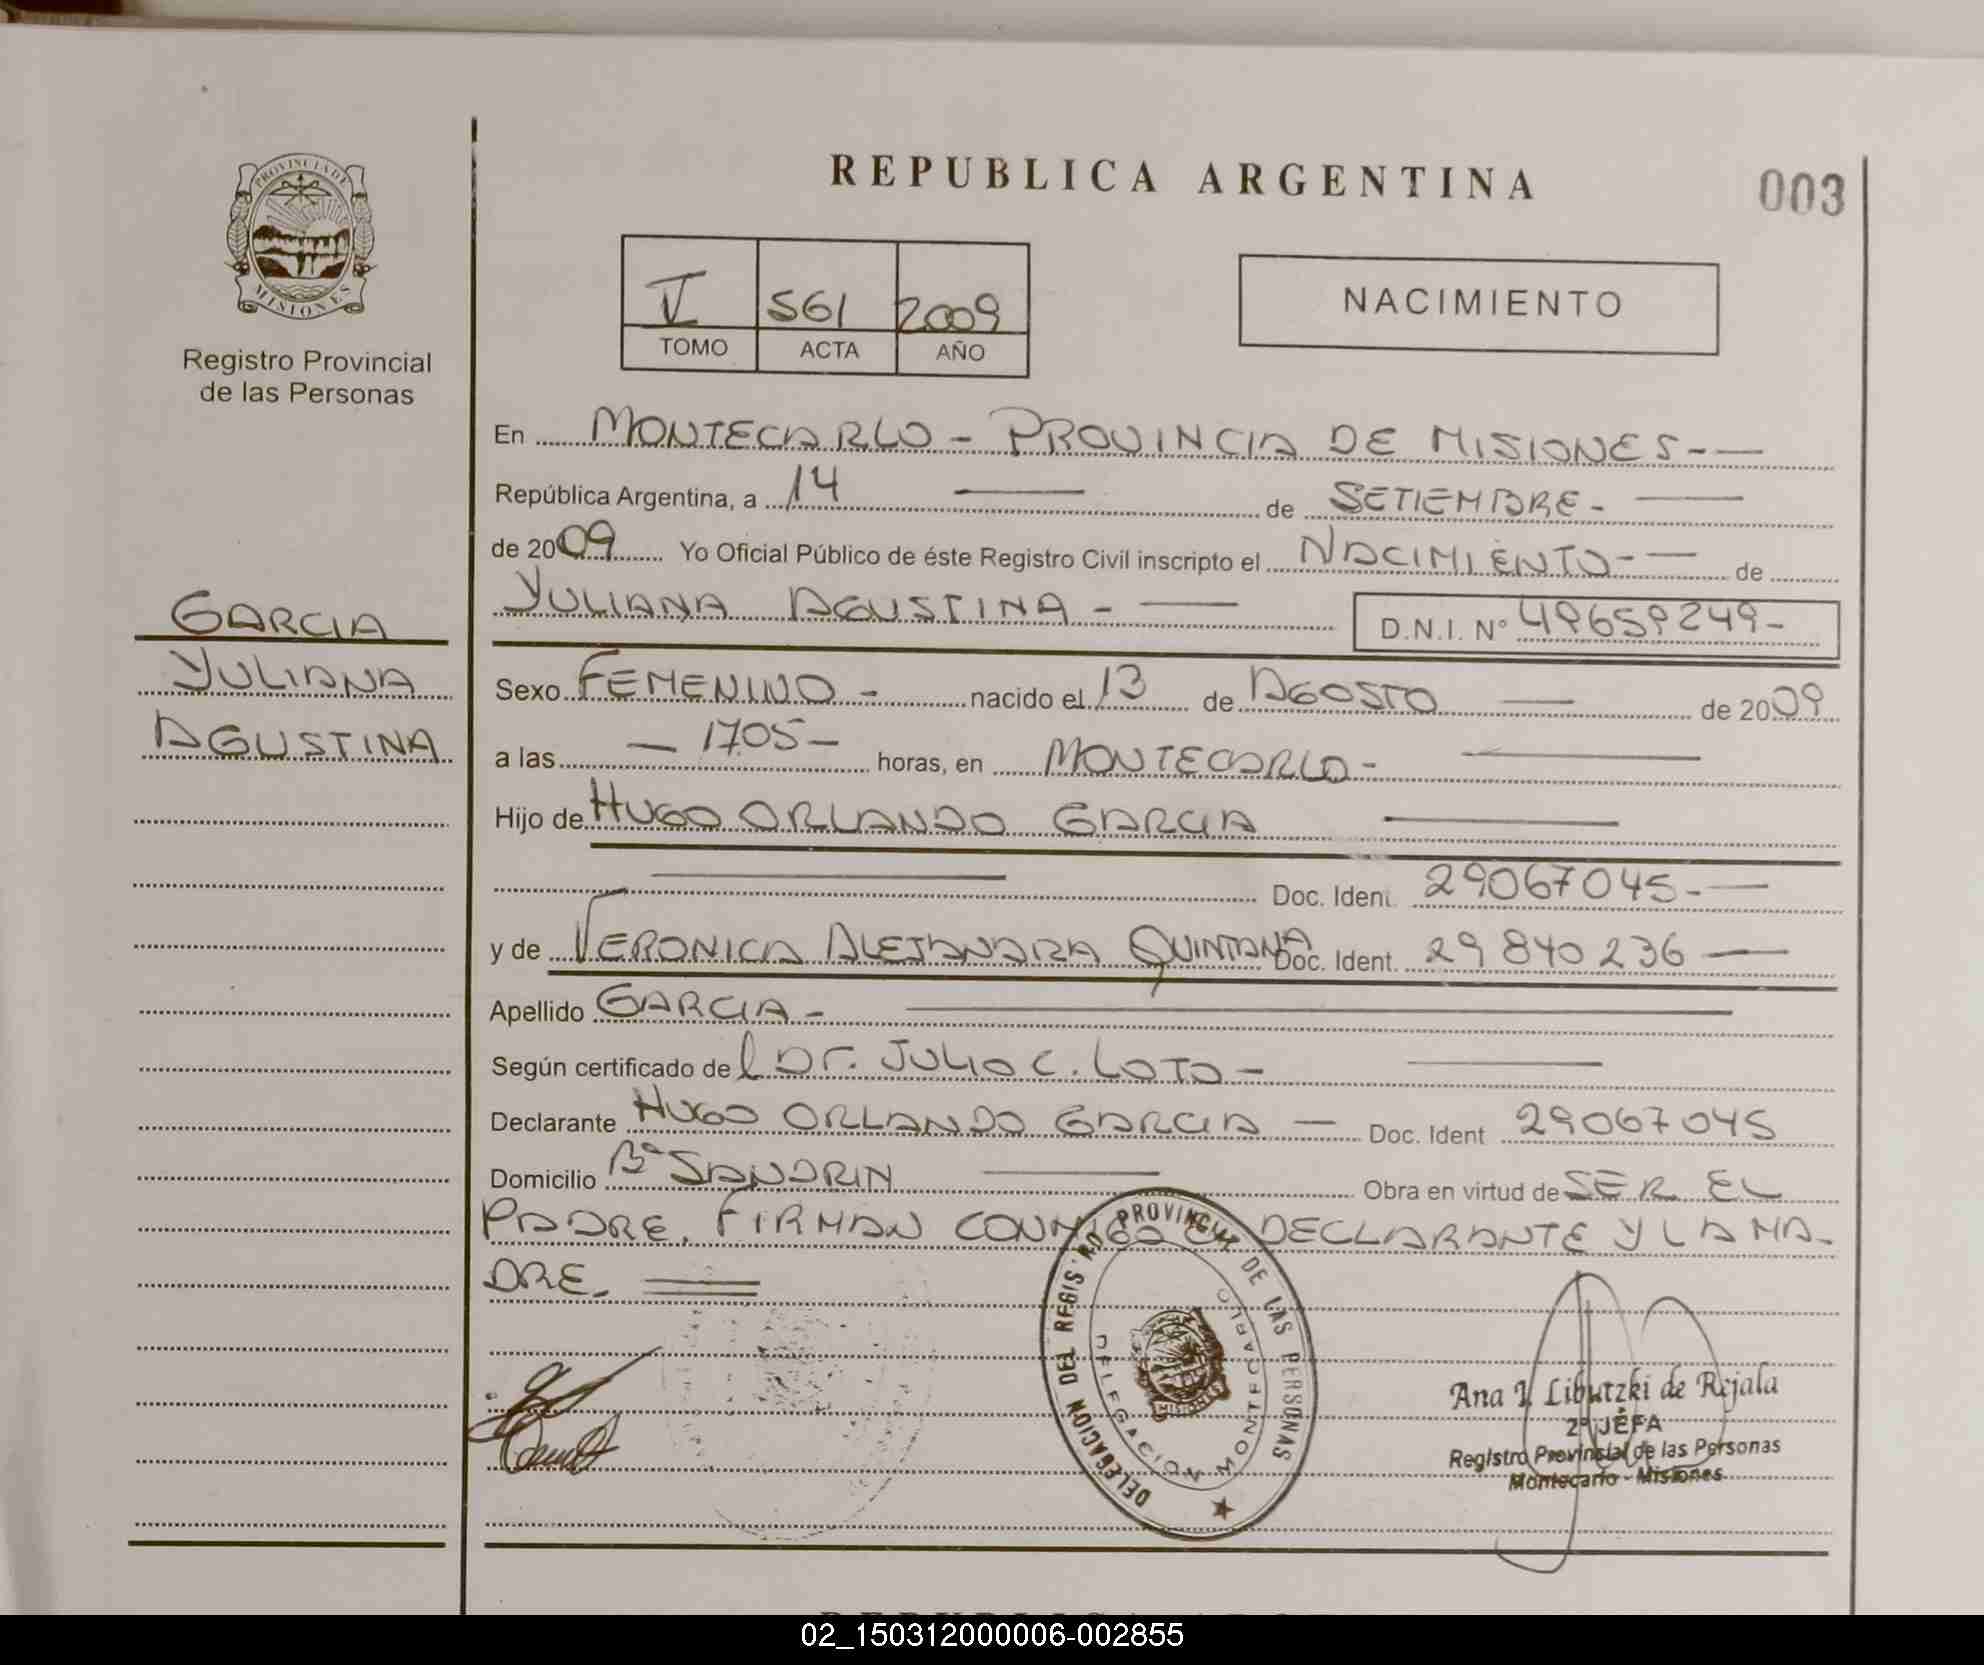 REPUBLICA ARGENTINA
003
PROVINCIA DE
MISIONES
Registro Provincial
de las Personas
V 561 2009
TOMO ACTA AÑO
NACIMIENTO
En MONTECARLO - PROVINCIA DE MISIONES - —
República Argentina, a 14 — de SETIEMBRE - —
de 2009 Yo Oficial Público de éste Registro Civil inscripto el NACIMIENTO - — de
YULIANA AGUSTINA - — D.N.I. Nº 49659249-
GARCIA
YULIANA
AGUSTINA
Sexo FEMENINO - nacido el 13 de AGOSTO — de 2009
a las — 17.05 — horas, en MONTECARLO - —
Hijo de HUGO ORLANDO GARCIA —
— Doc. Ident. 29067045 - —
y de VERONICA ALEJANDRA QUINTANA Doc. Ident. 29 840 236 —
Apellido GARCIA - —
Según certificado de l Dr. JULIO C. LOTO - —
Declarante HUGO ORLANDO GARCIA — Doc. Ident 29067045
Domicilio Bº SANDRIN — Obra en virtud de SER EL
PADRE. FIRMAN CONMIGO EL DECLARANTE Y LA MA-
DRE. =
DELEGACION DEL REGISTRO PROVINCIAL DE LAS PERSONAS
DELEGACION MONTECARLO
MISIONES
Ana I. Libutzki de Rejala
2º JEFA
Registro Provincial de las Personas
Montecarlo - Misiones
02_150312000006-002855